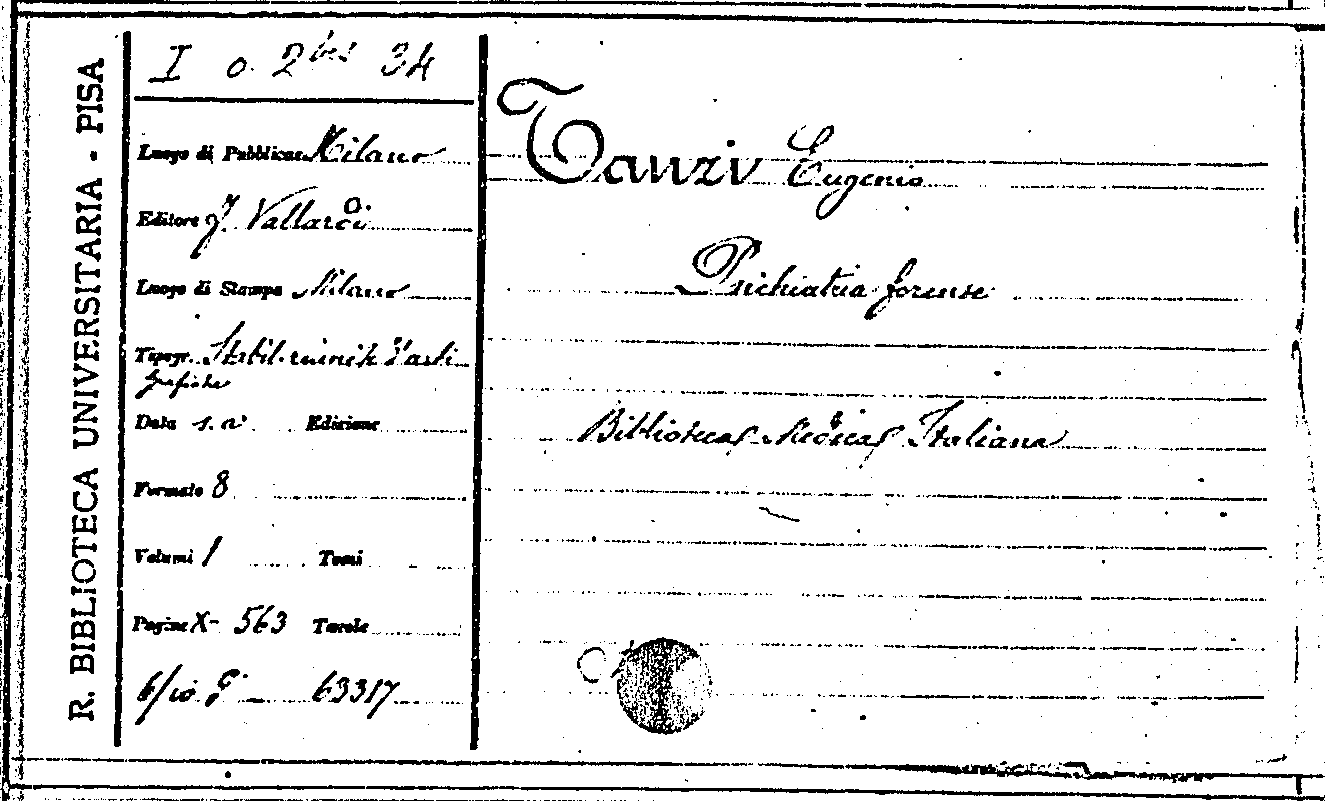 R. BIBLIOTECA UNIVERSITARIA - PISA
I o. 2bis 34
Luogo di Pubblicaz. Milano
Editore F. Vallardi
Luogo di Stampa Milano
Tipogr. Stabil. riuniti d'arti
grafiche
Data s. a. Edizione
Formato 8
Volumi 1 Tomi
Pagine X- 563 Tavole
63317
Tanzi Eugenio
Psichiatria forense
Biblioteca Medica Italiana